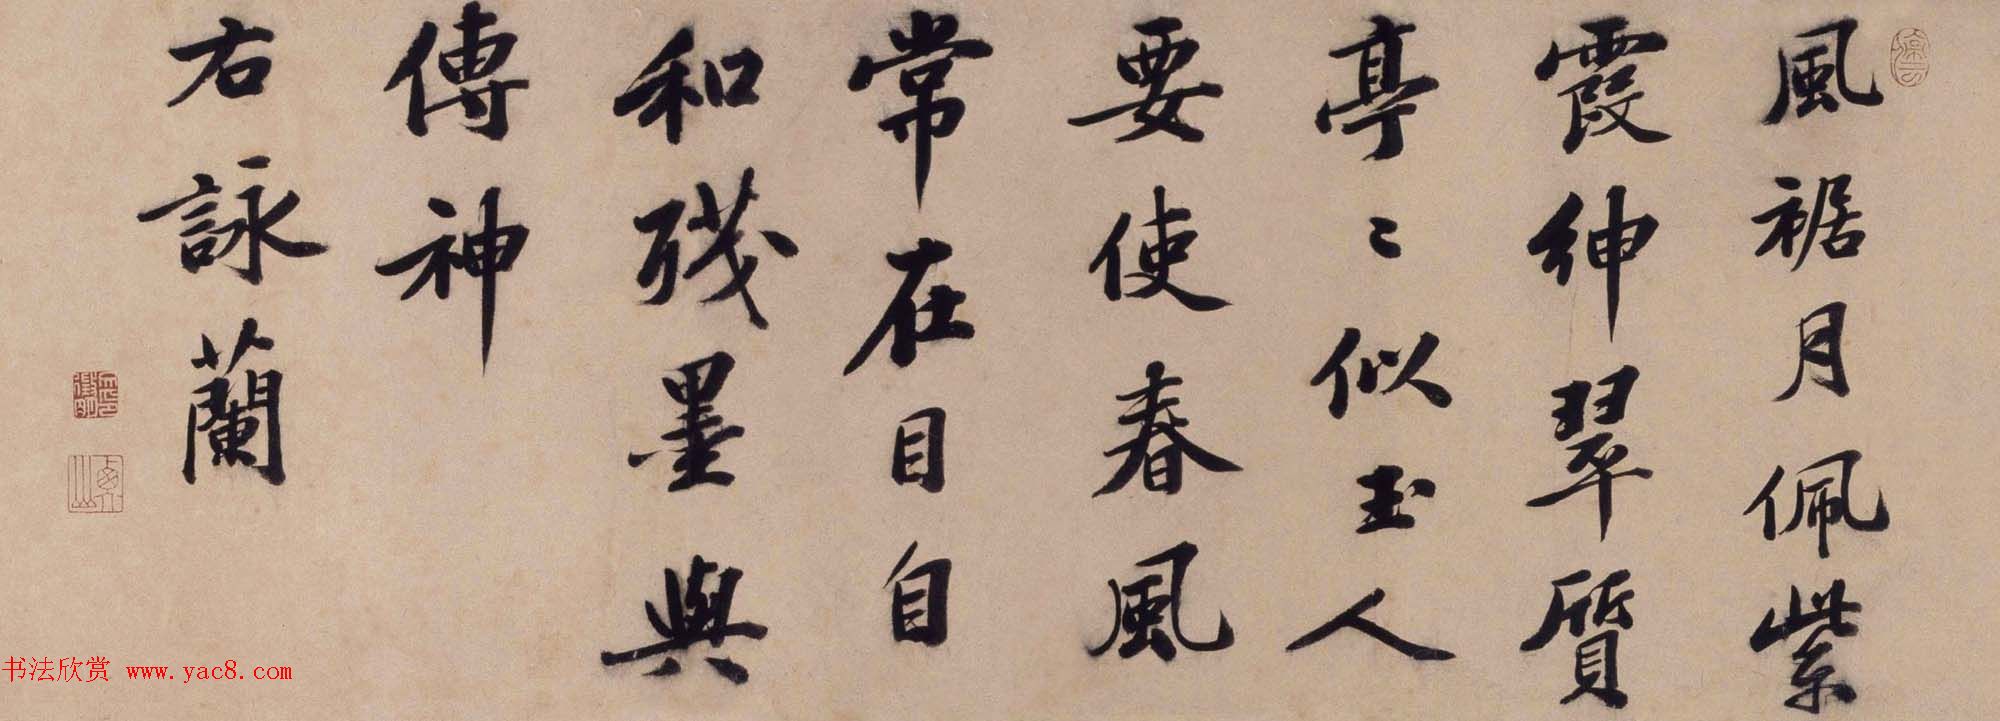 風裾月佩紫
霞紳翠質
亭〻似玉人
要使春風
常在目自
和殘墨與
傳神
右詠蘭
书法欣赏 www.yac8.com